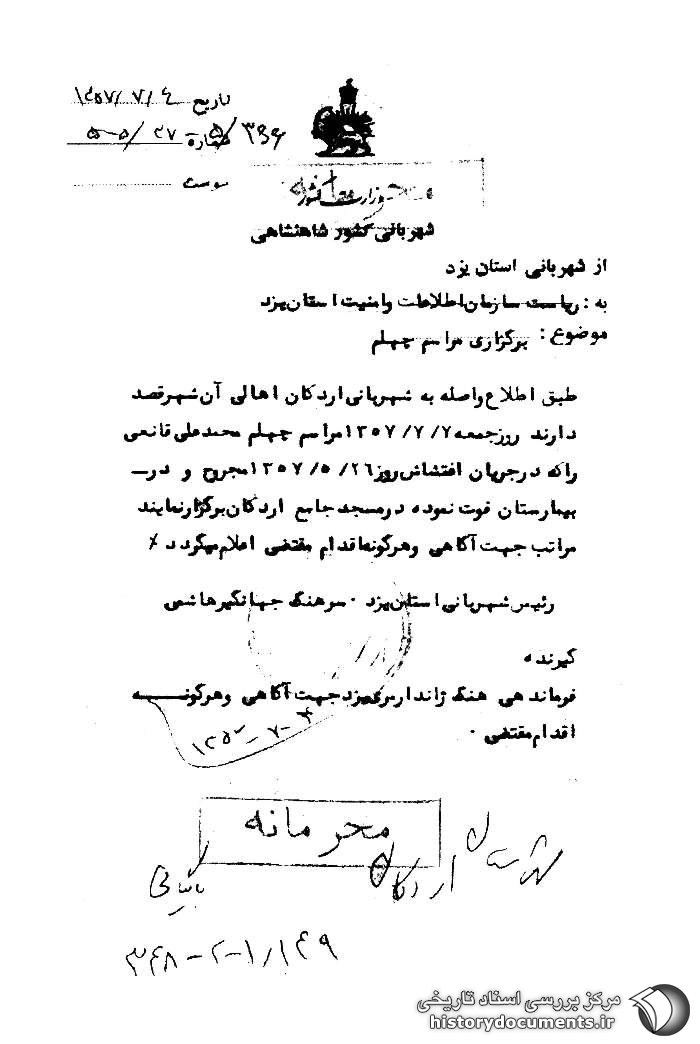 تاریخ ۱۳۵۷/۷/٤
شماره ۵/۳۹۶-۲۷/۵-۵
پیوست
وزارت کشور
شهربانی کشور شاهنشاهی
از شهربانی استان یزد
به : ریاست سازمان اطلاعات وامنیت استان یزد
موضوع : برگزاری مراسم چهلم
طبق اطلاع واصله به شهربانی اردکان اهالی آن شهر قصد
دارند روز جمعه ۷/ ۷/ ۱۳۵۷ مراسم چهلم محمد علی قانعی
را که در جریان اغتشاش روز ۲۶/ ۵/ ۱۳۵۷ مجروح و در
بیمارستان فوت نموده در مسجد جامع اردکان برگزار نمایند
مراتب جهت آگاهی و هرگونه اقدام مقتضی اعلام میگردد /
رئیس شهربانی استان یزد ۰ سرهنگ جهانگیر هاشمی
گیرنده
فرماندهی هنگ ژاندارمری یزد جهت آگاهی و هرگونه
اقدام مقتضی ۰
محرمانه
شهرستان اردکان
بایگانی
۳۴۸-۲-۱/۱۴۹
مرکز بررسی اسناد تاریخی
historydocuments.ir